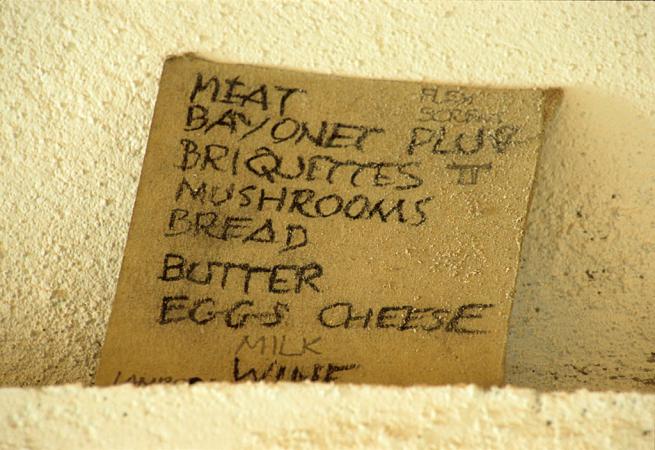 MEAT
FLEX
SCREWS
BAYONET PLUG
BRIQUETTES II
MUSHROOMS
BREAD
BUTTER
EGGS CHEESE
MILK
WINE